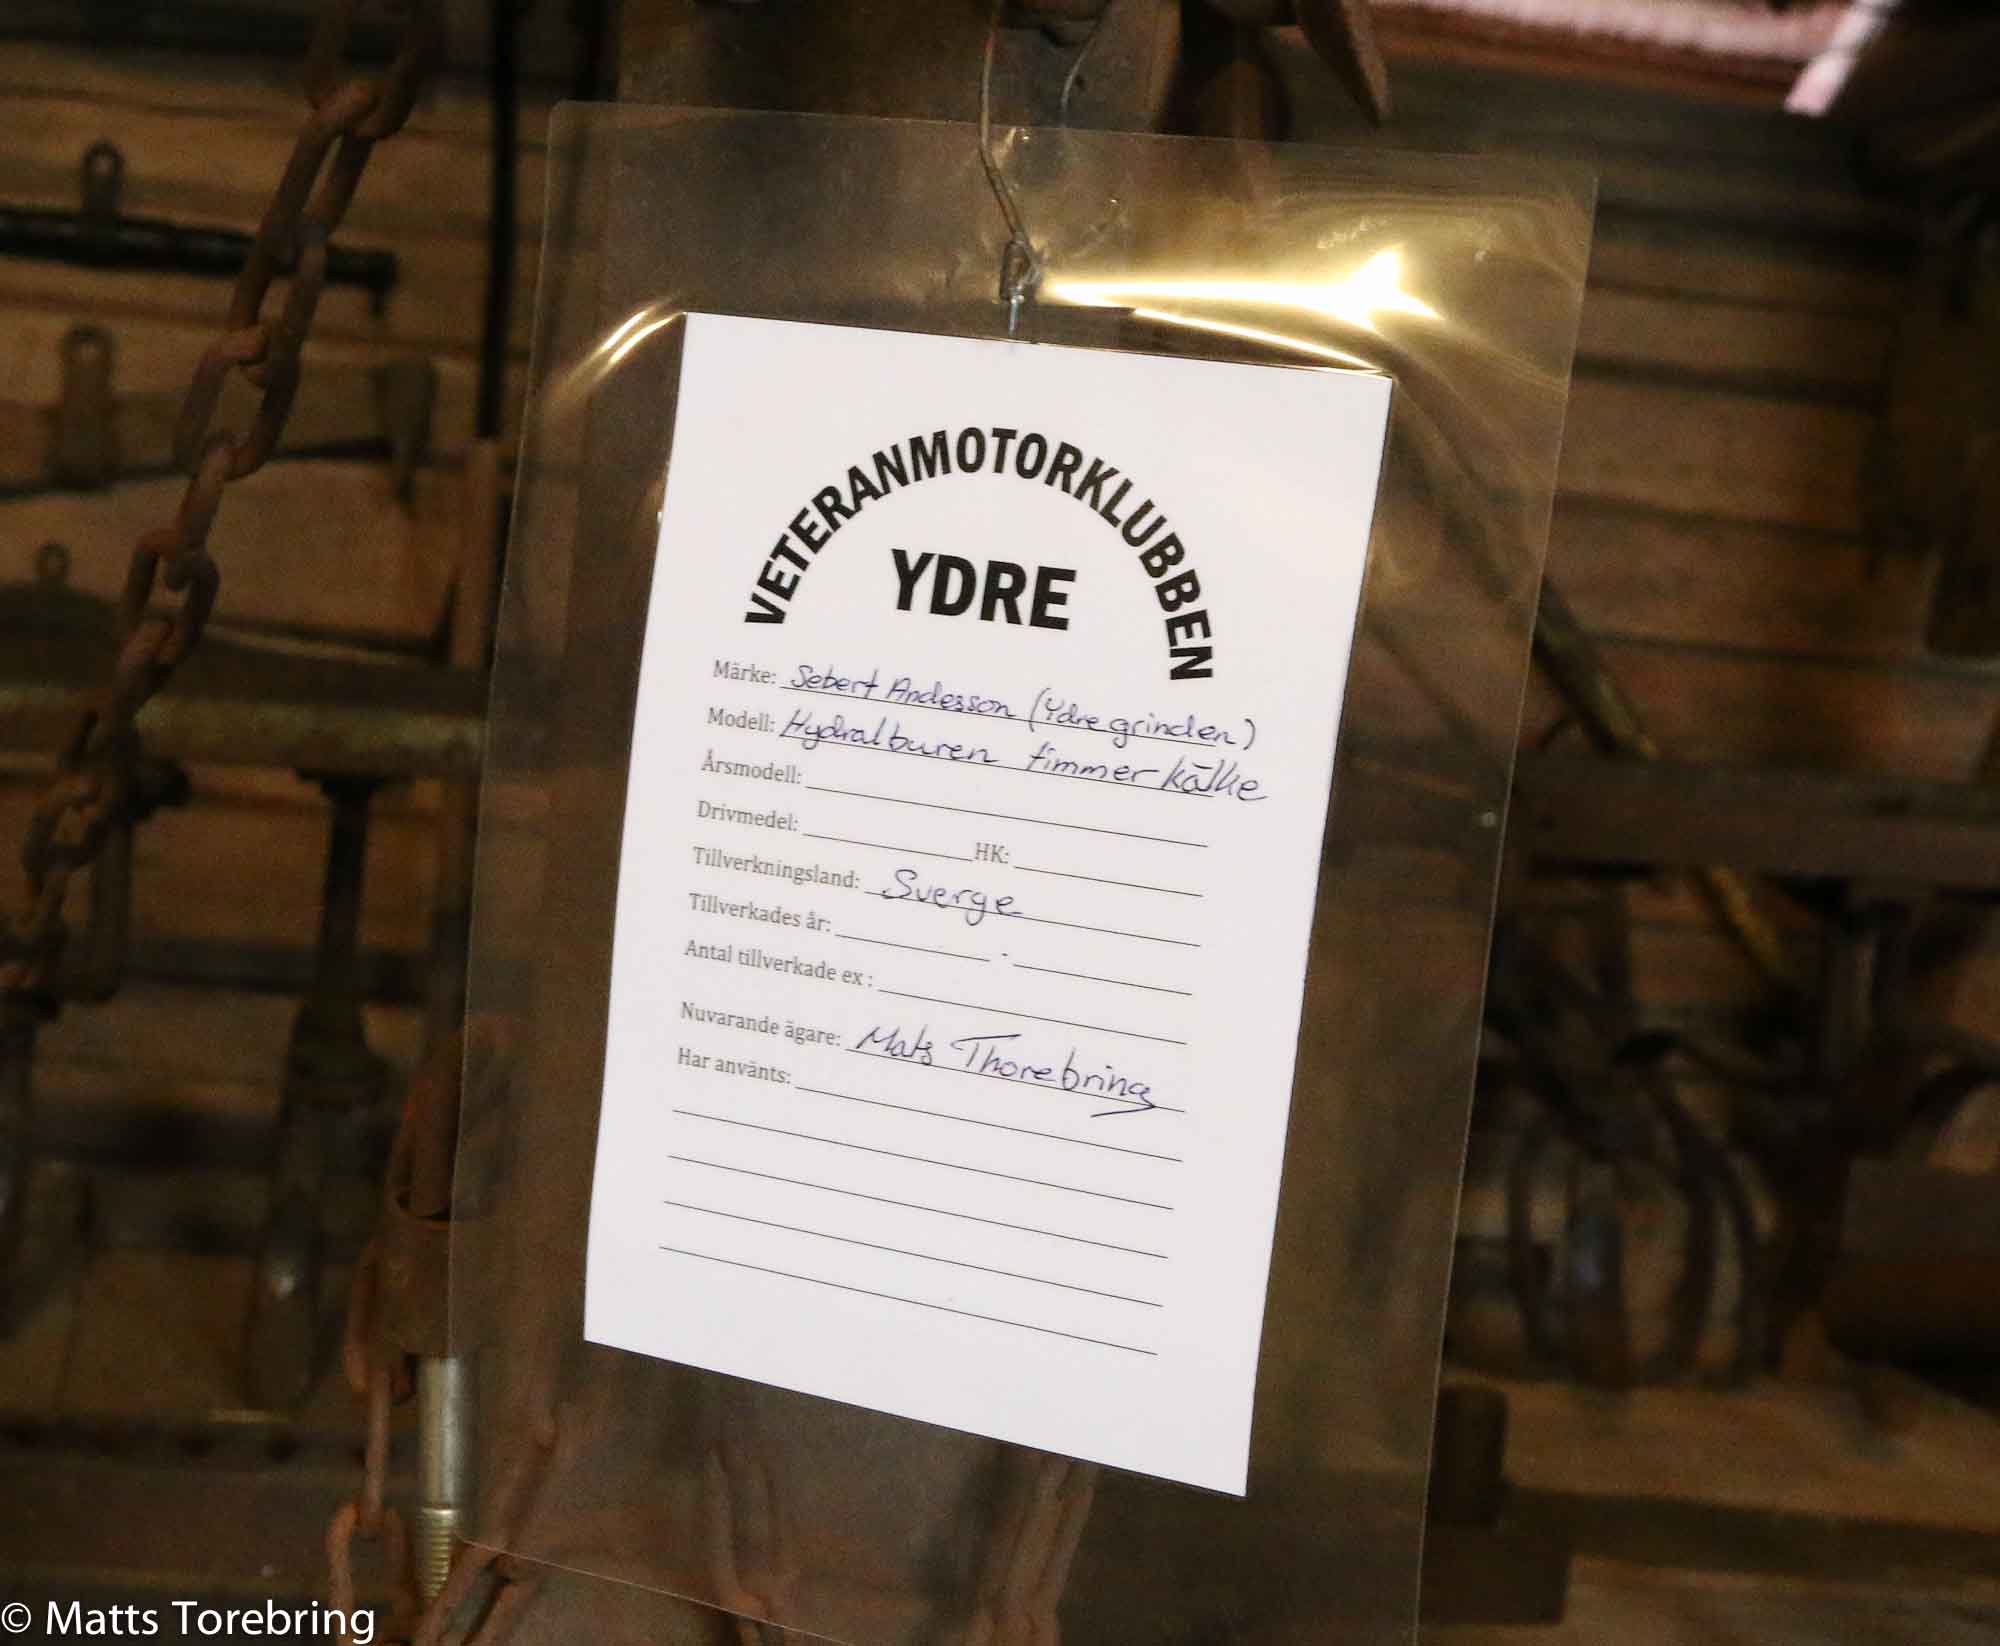 VETERANMOTORKLUBBEN
YDRE
Märke: Sebert Andesson (Ydregrinden)
Modell: Hydralburen timmerkälke
Årsmodell:
Drivmedel: HK:
Tillverkningsland: Sverge
Tillverkades år: -
Antal tillverkade ex :
Nuvarande ägare: Mats Thorebring
Har använts:
© Matts Torebring